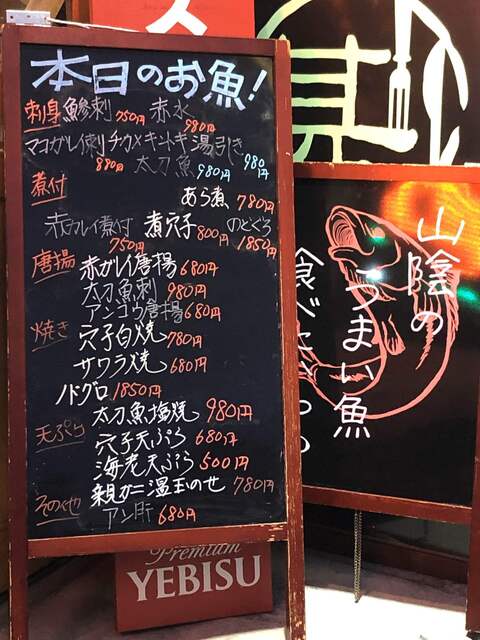 本日のお魚!
刺身 鯵刺 750円 赤水 980円
マコガレイ刺 880円 チカメキントキ湯引き 980円
太刀魚 980円
煮付 あら煮 780円
赤ガレイ煮付 750円 煮穴子 800円 のどぐろ 1850円
唐揚 赤ガレイ唐揚 680円
太刀魚刺 980円
アンコウ唐揚 680円
焼き 穴子白焼 780円
サワラ焼 680円
ノドグロ 1850円
太刀魚塩焼 980円
天ぷら 穴子天ぷら 680円
海老天ぷら 500円
親ガニ温玉のせ 780円
その他 アン肝 680円
Premium
YEBISU
山陰の
うまい魚